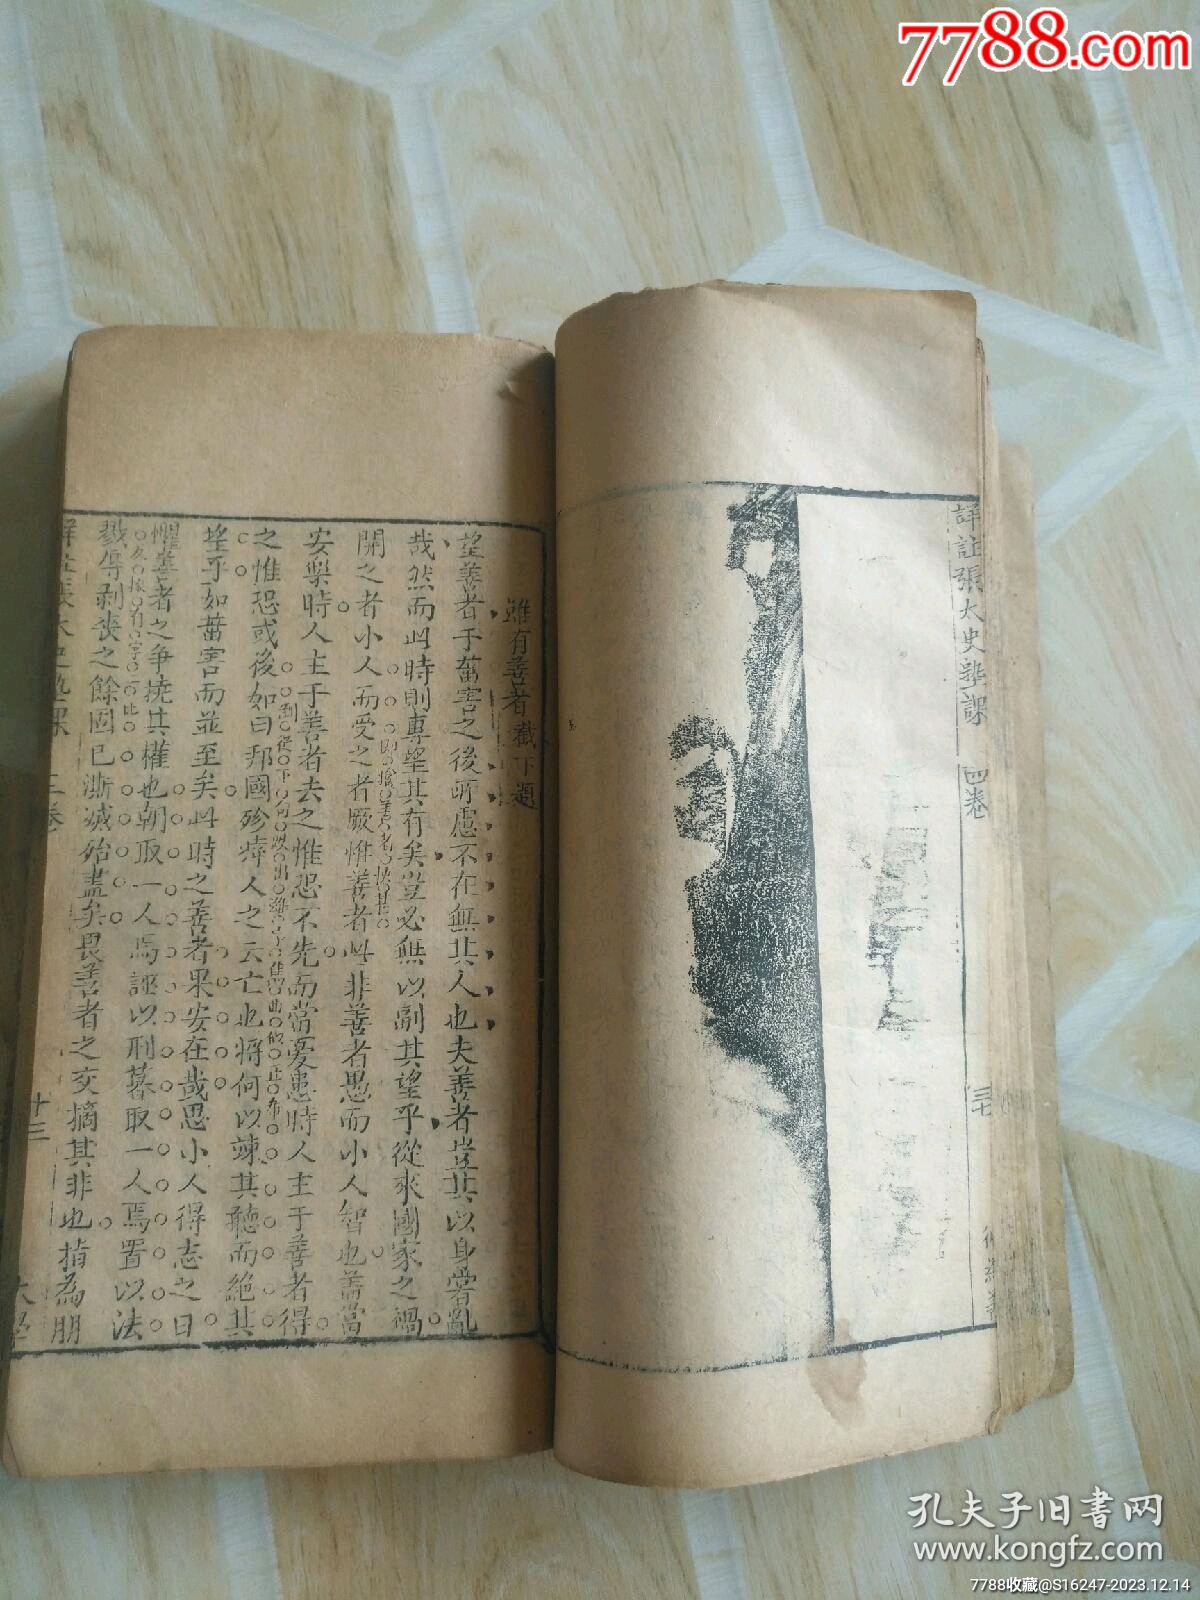 7788.com
詳註張太史塾課 四卷
雖有善者 截下題
望善者于菑害之後所慮不在無其人也夫善者豈其以身嘗亂
哉然而此時則專望其有矣豈必無以副其望乎從來國家之禍
開之者小人而受之者厥惟善者此非善者愚而小人智也蓋當
安樂時人主于善者去之惟恐不先而當憂患時人主于善者得
之惟恐或後如曰邦國殄瘁人之云亡也將何以竦其聽而絕其
望乎如菑害而並至矣此時之善者果安在哉思小人得志之日
懼善者之爭撓其權也朝取一人焉誣以刑暮取一人焉置以法
戮辱剥喪之餘固已澌滅殆盡矣畏善者之交摘其非也指為朋
十三
孔夫子旧書网
www.kongfz.com
7788收藏@S16247-2023.12.14